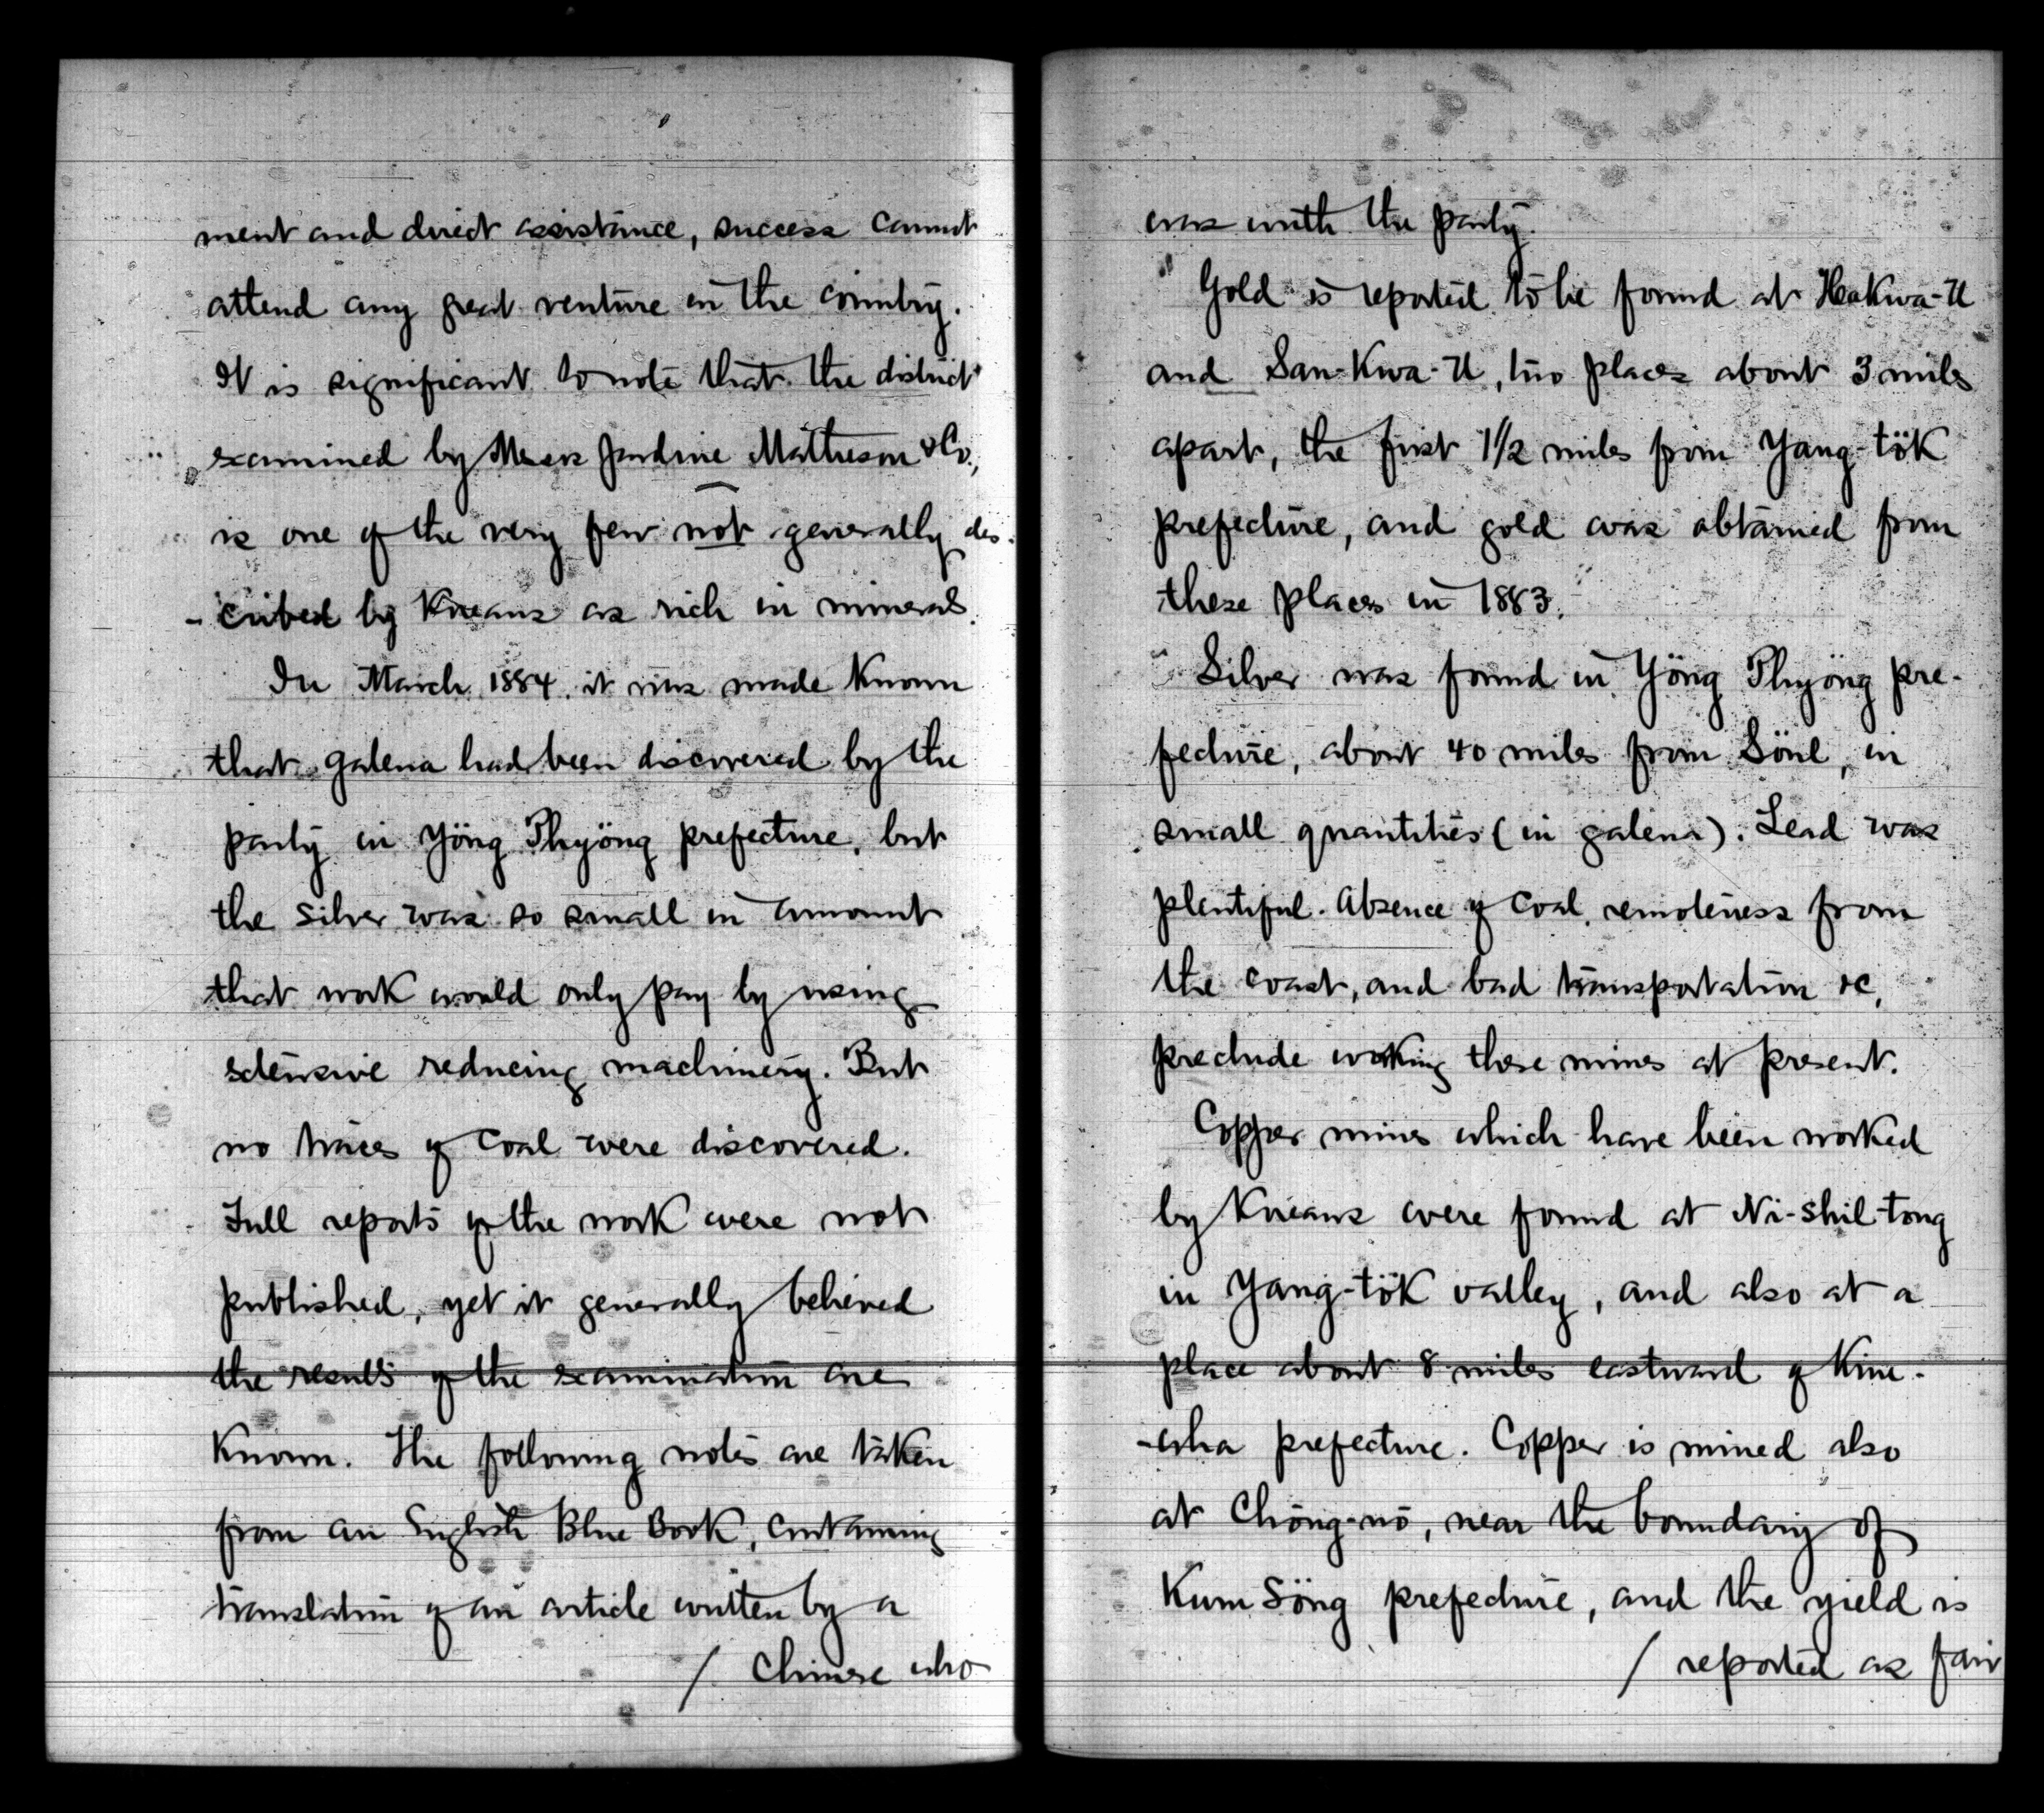 ment and direct assistance, success cannot
attend any great venture in the country.
It is significant to note that the district
examined by Messrs Jardine Matheson & Co,
is one of the very few not generally des-
-cribed by Koreans as rich in minerals.
In March 1884, it was made known
that galena had been discovered by the
party in Yöng Phyöng prefecture, but
the silver was so small in amount
that work would only pay by using
extensive reducing machinery. But
no traces of coal were discovered.
Full reports of the work were not
published, yet it generally believed
the results of the examination are
known. The following notes are taken
from an English Blue Book, containing
translation of an article written by a
/ Chinese who
was with the party.
Gold is reported to be found at Hakwa-U
and San-Kwa-U, two places about 3 miles
apart, the first 1 1/2 miles from Yang-tök
prefecture, and gold was obtained from
these places in 1883.
Silver was found in Yöng Phyöng pre-
fecture, about 40 miles from Söul, in
small quantities (in galena). Lead was
plentiful. Absence of coal, remoteness from
the coast, and bad transportation &c,
preclude working these mines at present.
Copper mines which have been worked
by Koreans were found at Ni-shil-tong
in Yang-tök valley, and also at a
place about 8 miles eastward of Kim-
-wha prefecture. Copper is mined also
at Chöng-nö, near the boundary of
Kum Söng prefecture, and the yield is
/ reported as fair